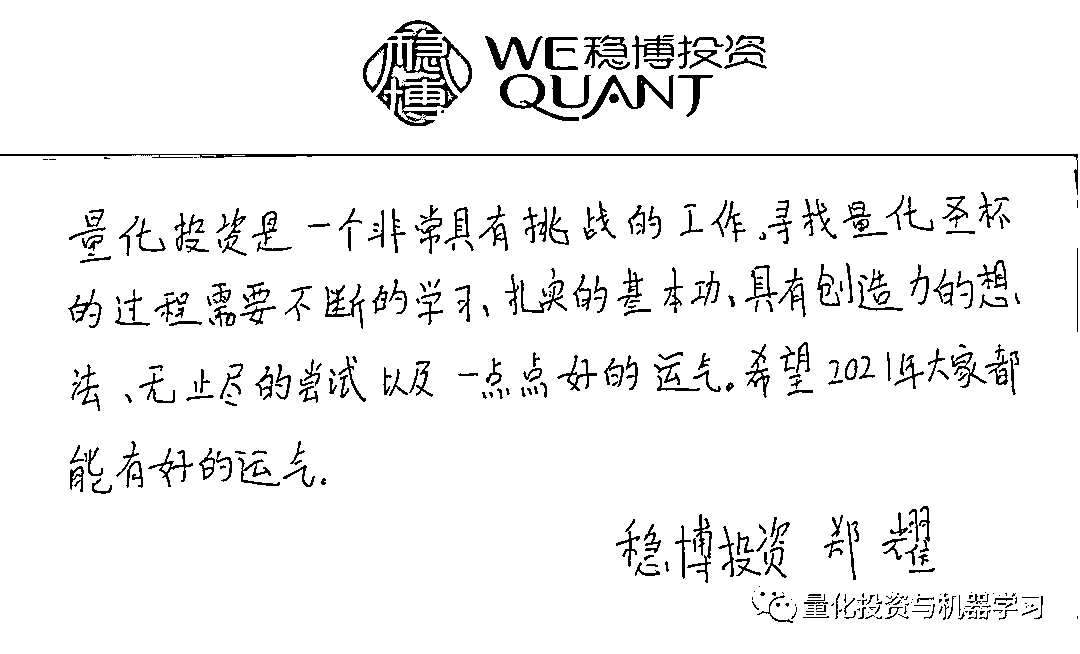 稳博
WE稳博投资
QUANT
量化投资是一个非常具有挑战的工作,寻找量化圣杯
的过程需要不断的学习、扎实的基本功、具有创造力的想
法、无止尽的尝试以及一点点好的运气。希望2021年大家都
能有好的运气.
稳博投资 郑耀
量化投资与机器学习